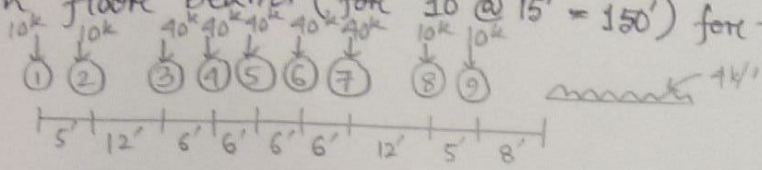 floor beams (for 10 @ 15' = 150') for
10k 10k 40k 40k 40k 40k 40k 10k 10k
1 2 3 4 5 6 7 8 9
4k/'
5' 12' 6' 6' 6' 6' 12' 5' 8'